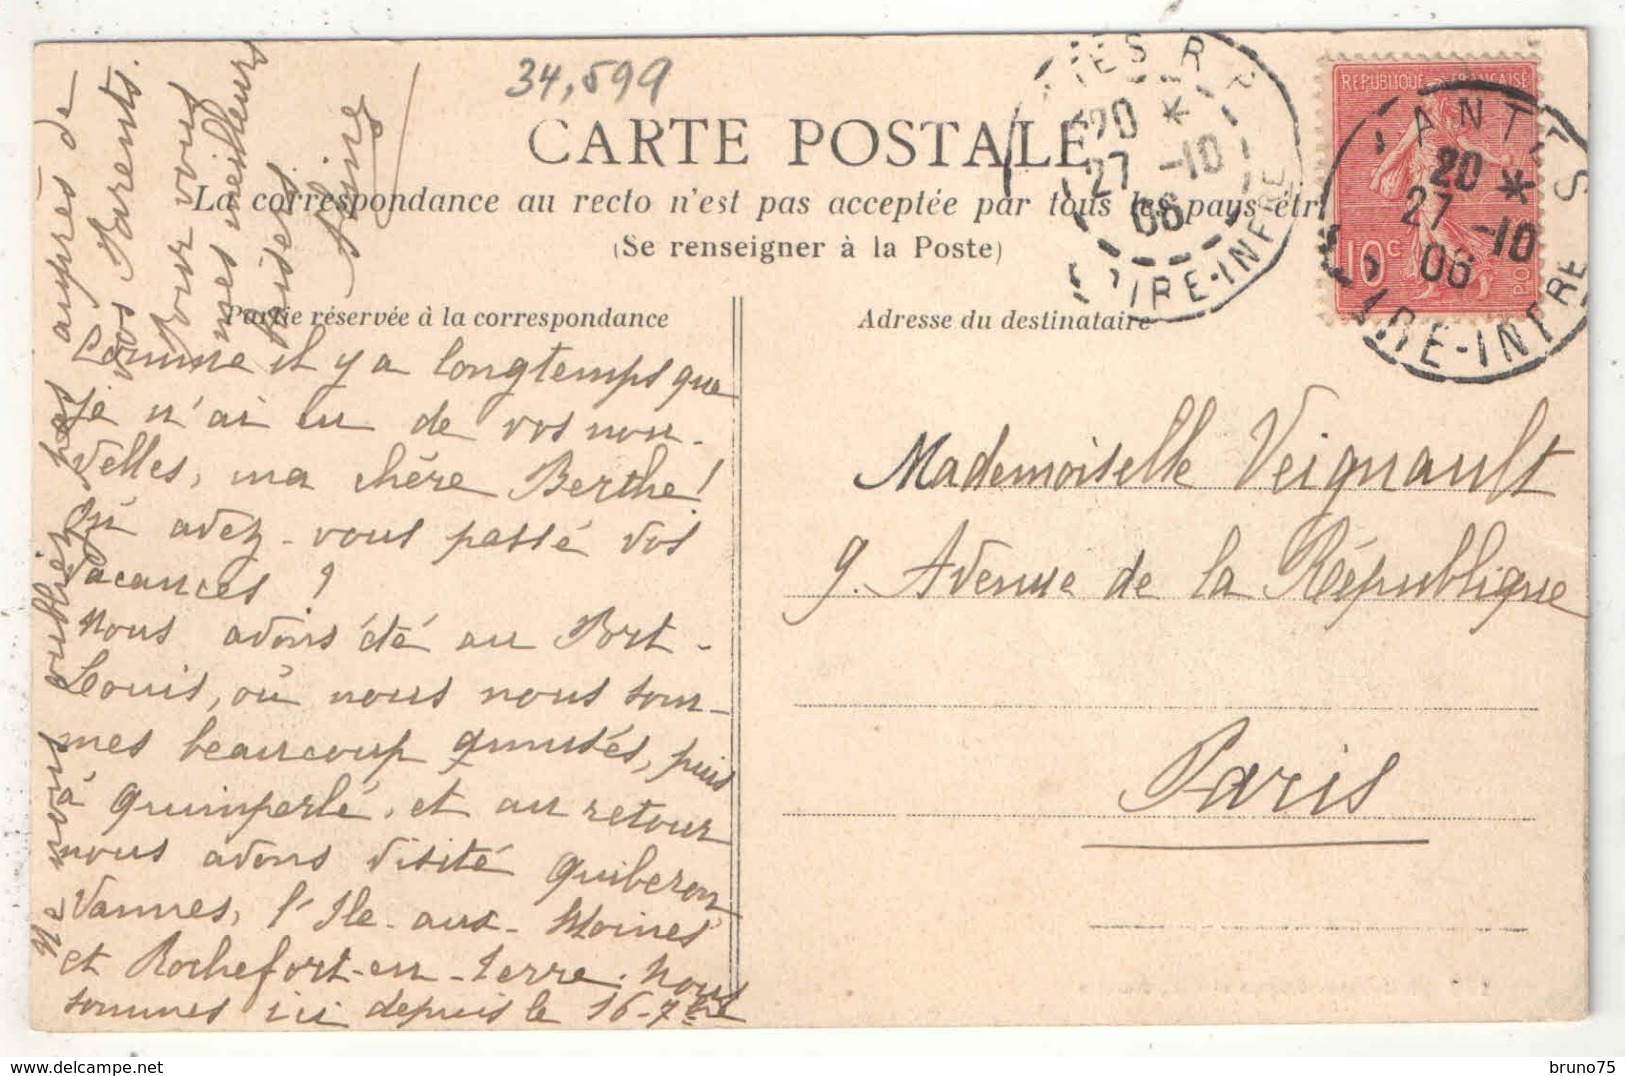 34,599
CARTE POSTALE
La correspondance au recto n'est pas acceptée par tous les pays étr
(Se renseigner à la Poste)
Partie réservée à la correspondance
Adresse du destinataire
REPUBLIQUE FRANÇAISE
10c
NANTES R.P.
20 *
27 -10
06
LOIRE-INFRE
NANTES
20 *
27 -10
06
LOIRE-INFRE
Comme il y a longtemps que
je n'ai eu de vos nou-
velles, ma chère Berthe!
Où avez-vous passé vos
vacances?
Nous avons été au Port-
Louis, où nous nous som-
mes beaucoup amusés, puis
à Quimperlé, et au retour
nous avons visité Quiberon
Vannes, l'Ile-aux-Moines
et Rochefort-en-Terre. Nous
sommes ici depuis le 16-7bre
Ne nous oubliez pas auprès de
vos Parents.
Pour vous
mes meilleurs
baisers
Aline
Mademoiselle Veignault
9. Avenue de la République
Paris
bruno75